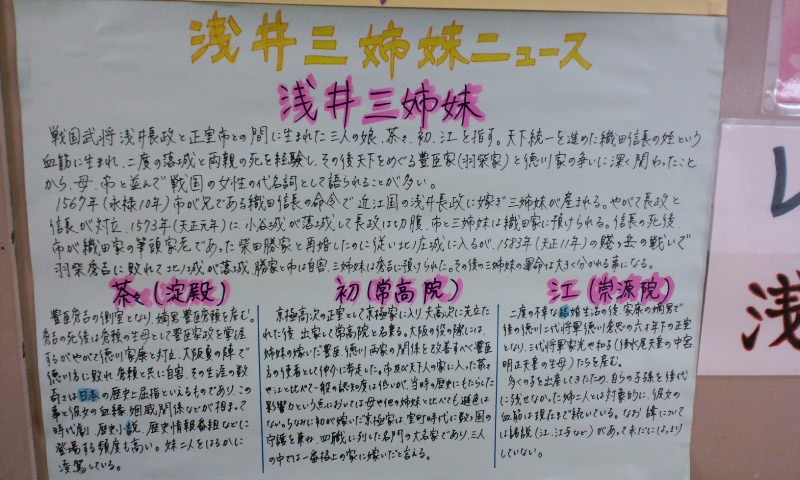 浅井三姉妹ニュース
浅井三姉妹
戦国武将 浅井長政と正室市との間に生まれた三人の娘、茶々、初、江を指す。天下統一を進めた織田信長の姪という
血筋に生まれ、二度の落城と両親の死を経験し、その後天下をめぐる豊臣家(羽柴家)と徳川家の争いに深く関わったこと
から、母・市と並んで戦国の女性の代名詞として語られることが多い。
1567年(永禄10年)市が兄である織田信長の命令で近江国の浅井長政に嫁ぎ三姉妹が産まれる。やがて長政と
信長が対立、1573年(天正元年)に、小谷城が落城して長政は切腹、市と三姉妹は織田家に預けられる。信長の死後、
市が織田家の筆頭家老であった柴田勝家と再婚したのに従い北ノ庄城に入るが、1583年(天正11年)の賤ヶ岳の戦いで
羽柴秀吉に敗れて北ノ城が落城、勝家と市は自害、三姉妹は秀吉に預けられた。その後の三姉妹の運命は大きく分かれる事になる。
茶々(淀殿)
豊臣秀吉の側室となり、嫡男豊臣秀頼を産む。
秀吉の死後は秀頼の生母として豊臣家政を掌握
するがやがて徳川家康と対立、大阪夏の陣で
徳川方に敗れ秀頼と共に自害、その生涯の数
奇さは日本の歴史上屈指といえるものであり、この
事と彼女の血縁・姻戚関係などが相まって
時代劇、歴史小説、歴史情報番組などに
登場する頻度も高い。妹二人をはるかに
凌駕している。
初(常高院)
京極高次の正室として京極家に入り、夫高次に先立た
れた後、出家して常高院と名乗る。大阪の役の際には、
姉妹の嫁いだ豊臣、徳川両家の関係を改善すべく豊臣
方の使者として仲介に奔走した。市及び天下人の家に入った茶々
や江と比べて一般の認知度は低いが、当時の歴史にもたらした
影響力という点においては母や他の姉妹と比べても遜色は
ない。ちなみに初が嫁いだ京極家は、室町時代に数ヶ国の
守護を兼ね、四職に列した名門の大名家であり、三人
の中では一番格上の家に嫁いだと言える。
江(崇源院)
二度の不幸な結婚生活の後、家康の嫡男で
後の徳川二代将軍徳川秀忠の六才年下の正室
となり、三代将軍家光や和子(後水尾天皇の中宮
明正天皇の生母)たちを産む。
多くの子を出産してきたため、自らの子孫を後代
に残せなかった姉二人とは対象的に、彼女の
血筋は現在まで続いている。なお、諱について
は諸説(江、江与など)があって未だにはっきり
していない。
レ
浅